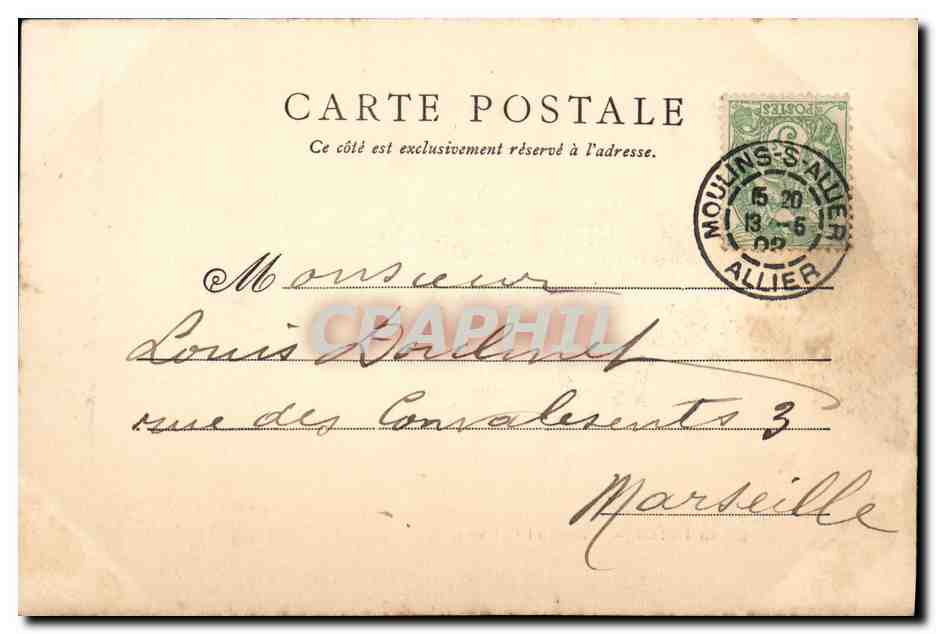 CARTE POSTALE
Ce côté est exclusivement réservé à l'adresse.
POSTES
5
MOULINS-S-ALLIER
15 20
13 -6
02
ALLIER
Monsieur
CPAPHIL
Louis
rue des Convalesents 3
Marseille